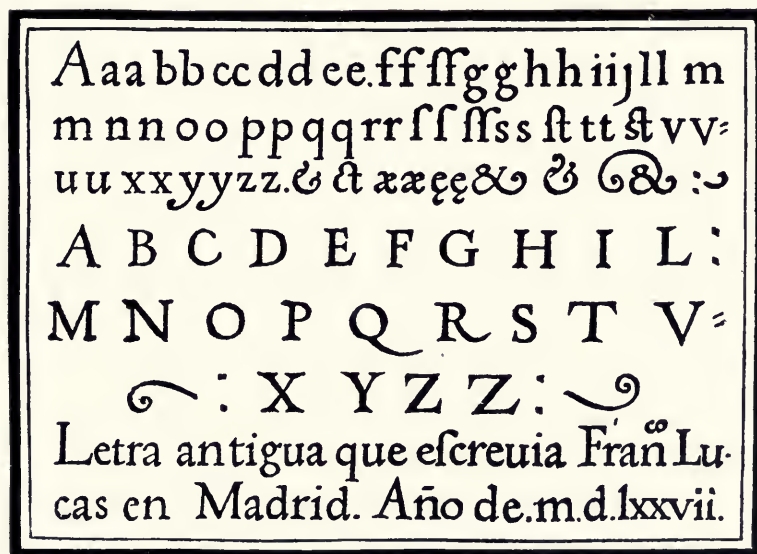 Aaabbccddee.ffſſgghhiijllm
mnnooppqqrrſſſſssſtttſtvv꞊
uuxxyyzz.&ctææęę&&&:
A B C D E F G H I L:
M N O P Q R S T V꞊
: X Y Z Z :
Letra antigua que eſcreuia Fran̄.co Lu-
cas en Madrid. Año de.m.d.lxxvii.